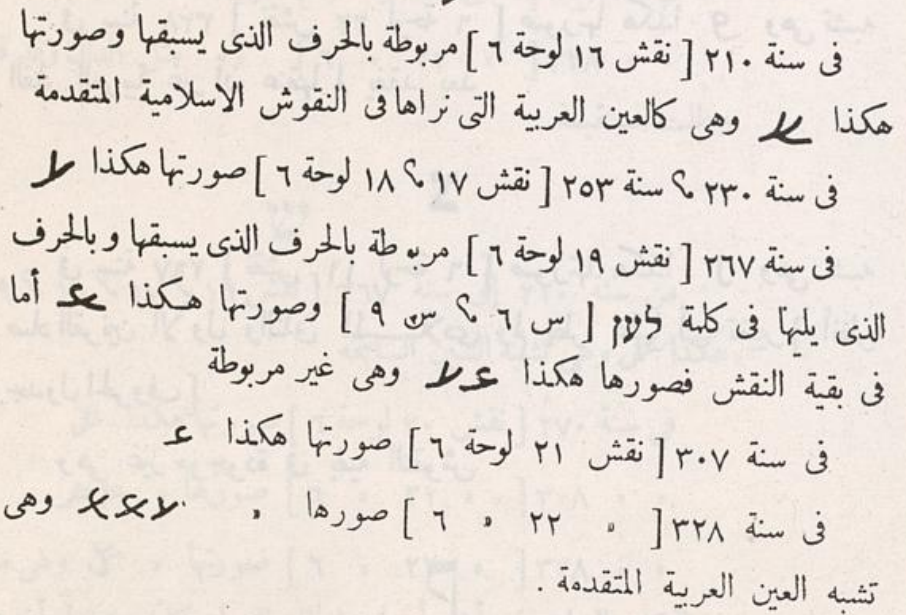 فى سنة ٢١٠ [ نقش ١٦ لوحة ٦ ] مربوطة بالحرف الذى يسبقها وصورتها
هكذا وهى كالعين العربية التى نراها فى النقوش الاسلامية المتقدمة
فى سنة ٢٣٠ ؟ سنة ٢٥٣ [ نقش ١٧ ؟ ١٨ لوحة ٦ ] صورتها هكذا
فى سنة ٢٦٧ [ نقش ١٩ لوحة ٦ ] مربوطة بالحرف الذى يسبقها وبالحرف
الذى يليها فى كلمة [ س ٦ ؟ س ٩ ] وصورتها هكذا أما
فى بقية النقش فصورها هكذا وهى غير مربوطة
فى سنة ٣٠٧ [ نقش ٢١ لوحة ٦ ] صورتها هكذا
فى سنة ٣٢٨ [ » ٢٢ » ٦ ] صورها » وهى
تشبه العين العربية المتقدمة .